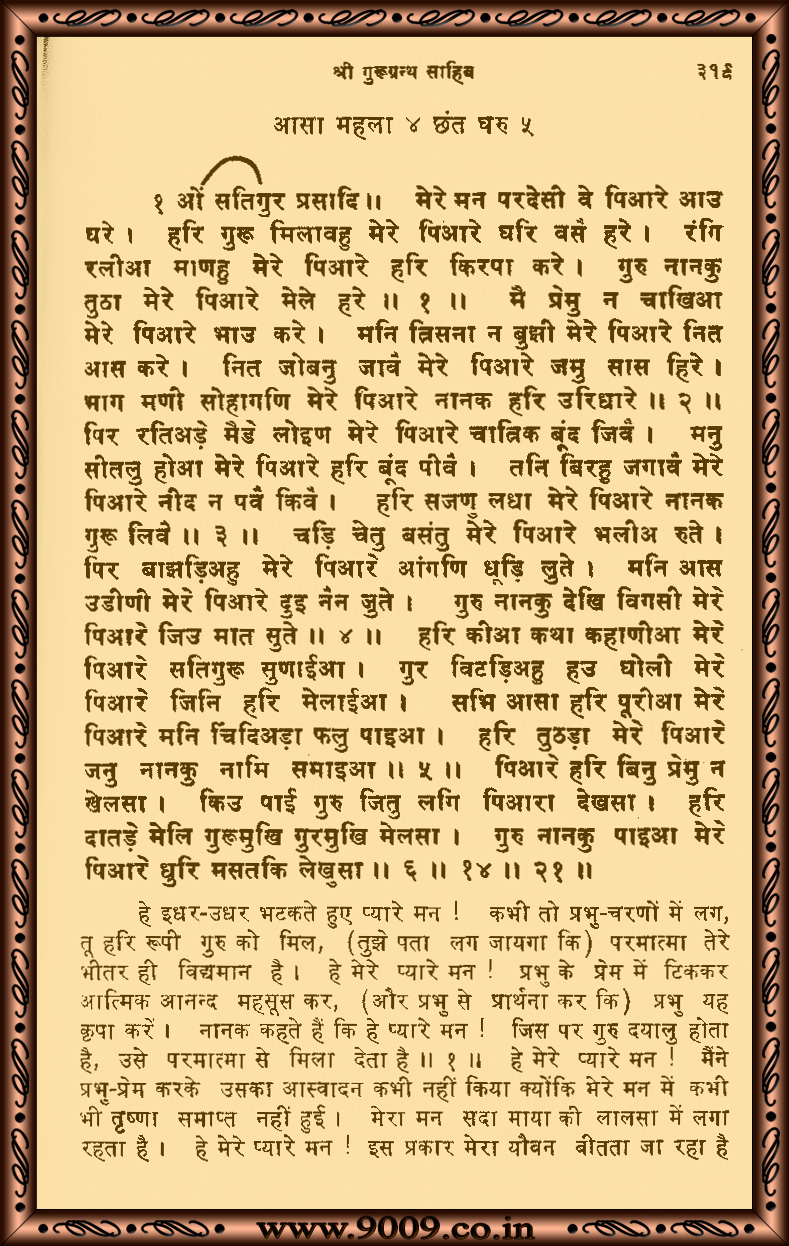 श्री गुरूग्रन्थ साहिब ३१९
आसा महला ४ छंत घरु ५
१ ओं सतिगुर प्रसादि॥ मेरे मन परदेसी वे पिआरे आउ
घरे । हरि गुरू मिलावहु मेरे पिआरे घरि वसै हरे । रंगि
रलीआ माणहु मेरे पिआरे हरि किरपा करे । गुरु नानकु
तुठा मेरे पिआरे मेले हरे ॥ १ ॥ मै प्रेमु न चाखिआ
मेरे पिआरे भाउ करे । मनि त्रिसना न बुझी मेरे पिआरे नित
आस करे । नित जोबनु जावै मेरे पिआरे जमु सास हिरे ।
भाग मणी सोहागणि मेरे पिआरे नानक हरि उरिधारे ॥ २ ॥
पिर रतिअड़े मैडे लोइण मेरे पिआरे चात्रिक बूंद जिवै । मनु
सीतलु होआ मेरे पिआरे हरि बूंद पीवै । तनि बिरहु जगावै मेरे
पिआरे नीद न पवै किवै । हरि सजणु लधा मेरे पिआरे नानक
गुरू लिवै ॥ ३ ॥ चड़ि चेतु बसंतु मेरे पिआरे भलीअ रुते ।
पिर बाझड़िअहु मेरे पिआरे आंगणि धूड़ि लुते । मनि आस
उडीणी मेरे पिआरे दुइ नैन जुते । गुरु नानकु देखि विगसी मेरे
पिआरे जिउ मात सुते ॥ ४ ॥ हरि कीआ कथा कहाणीआ मेरे
पिआरे सतिगुरू सुणाईआ । गुर विटड़िअहु हउ घोली मेरे
पिआरे जिनि हरि मेलाईआ । सभि आसा हरि पूरीआ मेरे
पिआरे मनि चिंदिअड़ा फलु पाइआ । हरि तुठड़ा मेरे पिआरे
जनु नानकु नामि समाइआ ॥ ५ ॥ पिआरे हरि बिनु प्रेमु न
खेलसा । किउ पाई गुरु जितु लगि पिआरा देखसा । हरि
दातड़े मेलि गुरूमुखि गुरमुखि मेलसा । गुरु नानकु पाइआ मेरे
पिआरे धुरि मसतकि लेखुसा ॥ ६ ॥ १४ ॥ २१ ॥
हे इधर-उधर भटकते हुए प्यारे मन ! कभी तो प्रभु-चरणों में लग,
तू हरि रूपी गुरु को मिल, (तुझे पता लग जायगा कि) परमात्मा तेरे
भीतर ही विद्यमान है । हे मेरे प्यारे मन ! प्रभु के प्रेम में टिककर
आत्मिक आनन्द महसूस कर, (और प्रभु से प्रार्थना कर कि) प्रभु यह
कृपा करें । नानक कहते हैं कि हे प्यारे मन ! जिस पर गुरु दयालु होता
है, उसे परमात्मा से मिला देता है ॥ १ ॥ हे मेरे प्यारे मन ! मैंने
प्रभु-प्रेम करके उसका आस्वादन कभी नहीं किया क्योंकि मेरे मन में कभी
भी तृष्णा समाप्त नहीं हुई । मेरा मन सदा माया की लालसा में लगा
रहता है । हे मेरे प्यारे मन ! इस प्रकार मेरा यौवन बीतता जा रहा है
www.9009.co.in